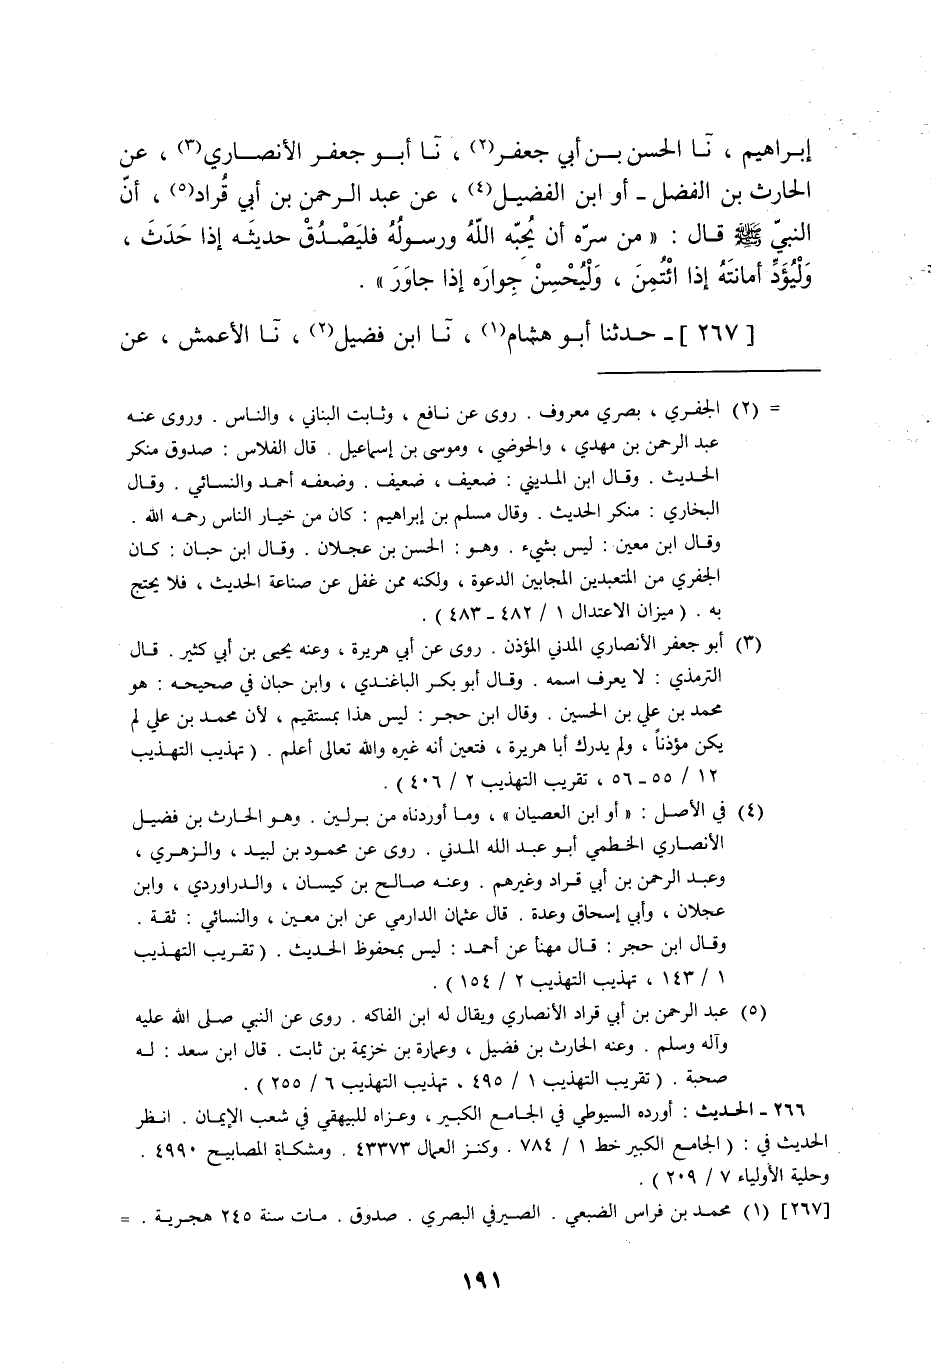 إبراهيم ، نَا الحسن بن أبي جعفر(٢) ، نَا أبو جعفر الأنصاري(٣) ، عن
الحارث بن الفضل ـ أو ابن الفضيل(٤) ، عن عبد الرحمن بن أبي قُراد(٥) ، أنّ
النبيّ ﷺ قال : « من سرّه أن يُحبّه اللّهُ ورسولُهُ فليَصْدُقْ حديثَه إذا حَدَثَ ،
وَلْيُؤَدِّ أمانتَهُ إذا ائْتُمِنَ ، وَلْيُحْسِنْ جِوارَه إذا جاوَرَ » .
[ ٢٦٧ ] ـ حدثنا أبو هشام(١) ، نَا ابن فضيل(٢) ، نَا الأعمش ، عن
= (٢) الجفري ، بصري معروف . روى عن نافع ، وثابت البناني ، والناس . وروى عنه
عبد الرحمن بن مهدي ، والحوضي ، وموسى بن إسماعيل . قال الفلاس : صدوق منكر
الحديث . وقال ابن المديني : ضعيف ، ضعيف . وضعفه أحمد والنسائي . وقال
البخاري : منكر الحديث . وقال مسلم بن إبراهيم : كان من خيار الناس رحمه الله .
وقال ابن معين : ليس بشيء . وهو : الحسن بن عجلان . وقال ابن حبان : كان
الجفري من المتعبدين المجابين الدعوة ، ولكنه ممن غفل عن صناعة الحديث ، فلا يحتج
به . ( ميزان الاعتدال ١ / ٤٨٢ ـ ٤٨٣ ) .
(٣) أبو جعفر الأنصاري المدني المؤذن . روى عن أبي هريرة ، وعنه يحيى بن أبي كثير . قال
الترمذي : لا يعرف اسمه . وقال أبو بكر الباغندي ، وابن حبان في صحيحه : هو
محمد بن علي بن الحسين . وقال ابن حجر : ليس هذا بمستقيم ، لأن محمد بن علي لم
يكن مؤذناً ، ولم يدرك أبا هريرة ، فتعين أنه غيره والله تعالى أعلم . ( تهذيب التهذيب
١٢ / ٥٥ ـ ٥٦ ، تقريب التهذيب ٢ / ٤٠٦ ) .
(٤) في الأصل : « أو ابن العصيان » ، وما أوردناه من برلين . وهو الحارث بن فضيل
الأنصاري الخطمي أبو عبد الله المدني . روى عن محمود بن لبيد ، والزهري ،
وعبد الرحمن بن أبي قراد وغيرهم . وعنه صالح بن كيسان ، والدراوردي ، وابن
عجلان ، وأبي إسحاق وعدة . قال عثمان الدارمي عن ابن معين ، والنسائي : ثقة .
وقال ابن حجر : قال مهنأ عن أحمد : ليس بمحفوظ الحديث . ( تقريب التهذيب
١ / ١٤٣ ، تهذيب التهذيب ٢ / ١٥٤ ) .
(٥) عبد الرحمن بن أبي قراد الأنصاري ويقال له ابن الفاكه . روى عن النبي صلى الله عليه
وآله وسلم . وعنه الحارث بن فضيل ، وعمارة بن خزيمة بن ثابت . قال ابن سعد : له
صحبة . ( تقريب التهذيب ١ / ٤٩٥ ، تهذيب التهذيب ٦ / ٢٥٥ ) .
٢٦٦ ـ الحديث : أورده السيوطي في الجامع الكبير ، وعزاه للبيهقي في شعب الإيمان . انظر
الحديث في : ( الجامع الكبير خط ١ / ٧٨٤ . وكنز العمال ٤٣٣٧٣ . ومشكاة المصابيح ٤٩٩٠ .
وحلية الأولياء ٧ / ٢٠٩ ) .
[٢٦٧] (١) محمد بن فراس الضبعي . الصيرفي البصري . صدوق . مات سنة ٢٤٥ هجرية . =
١٩١